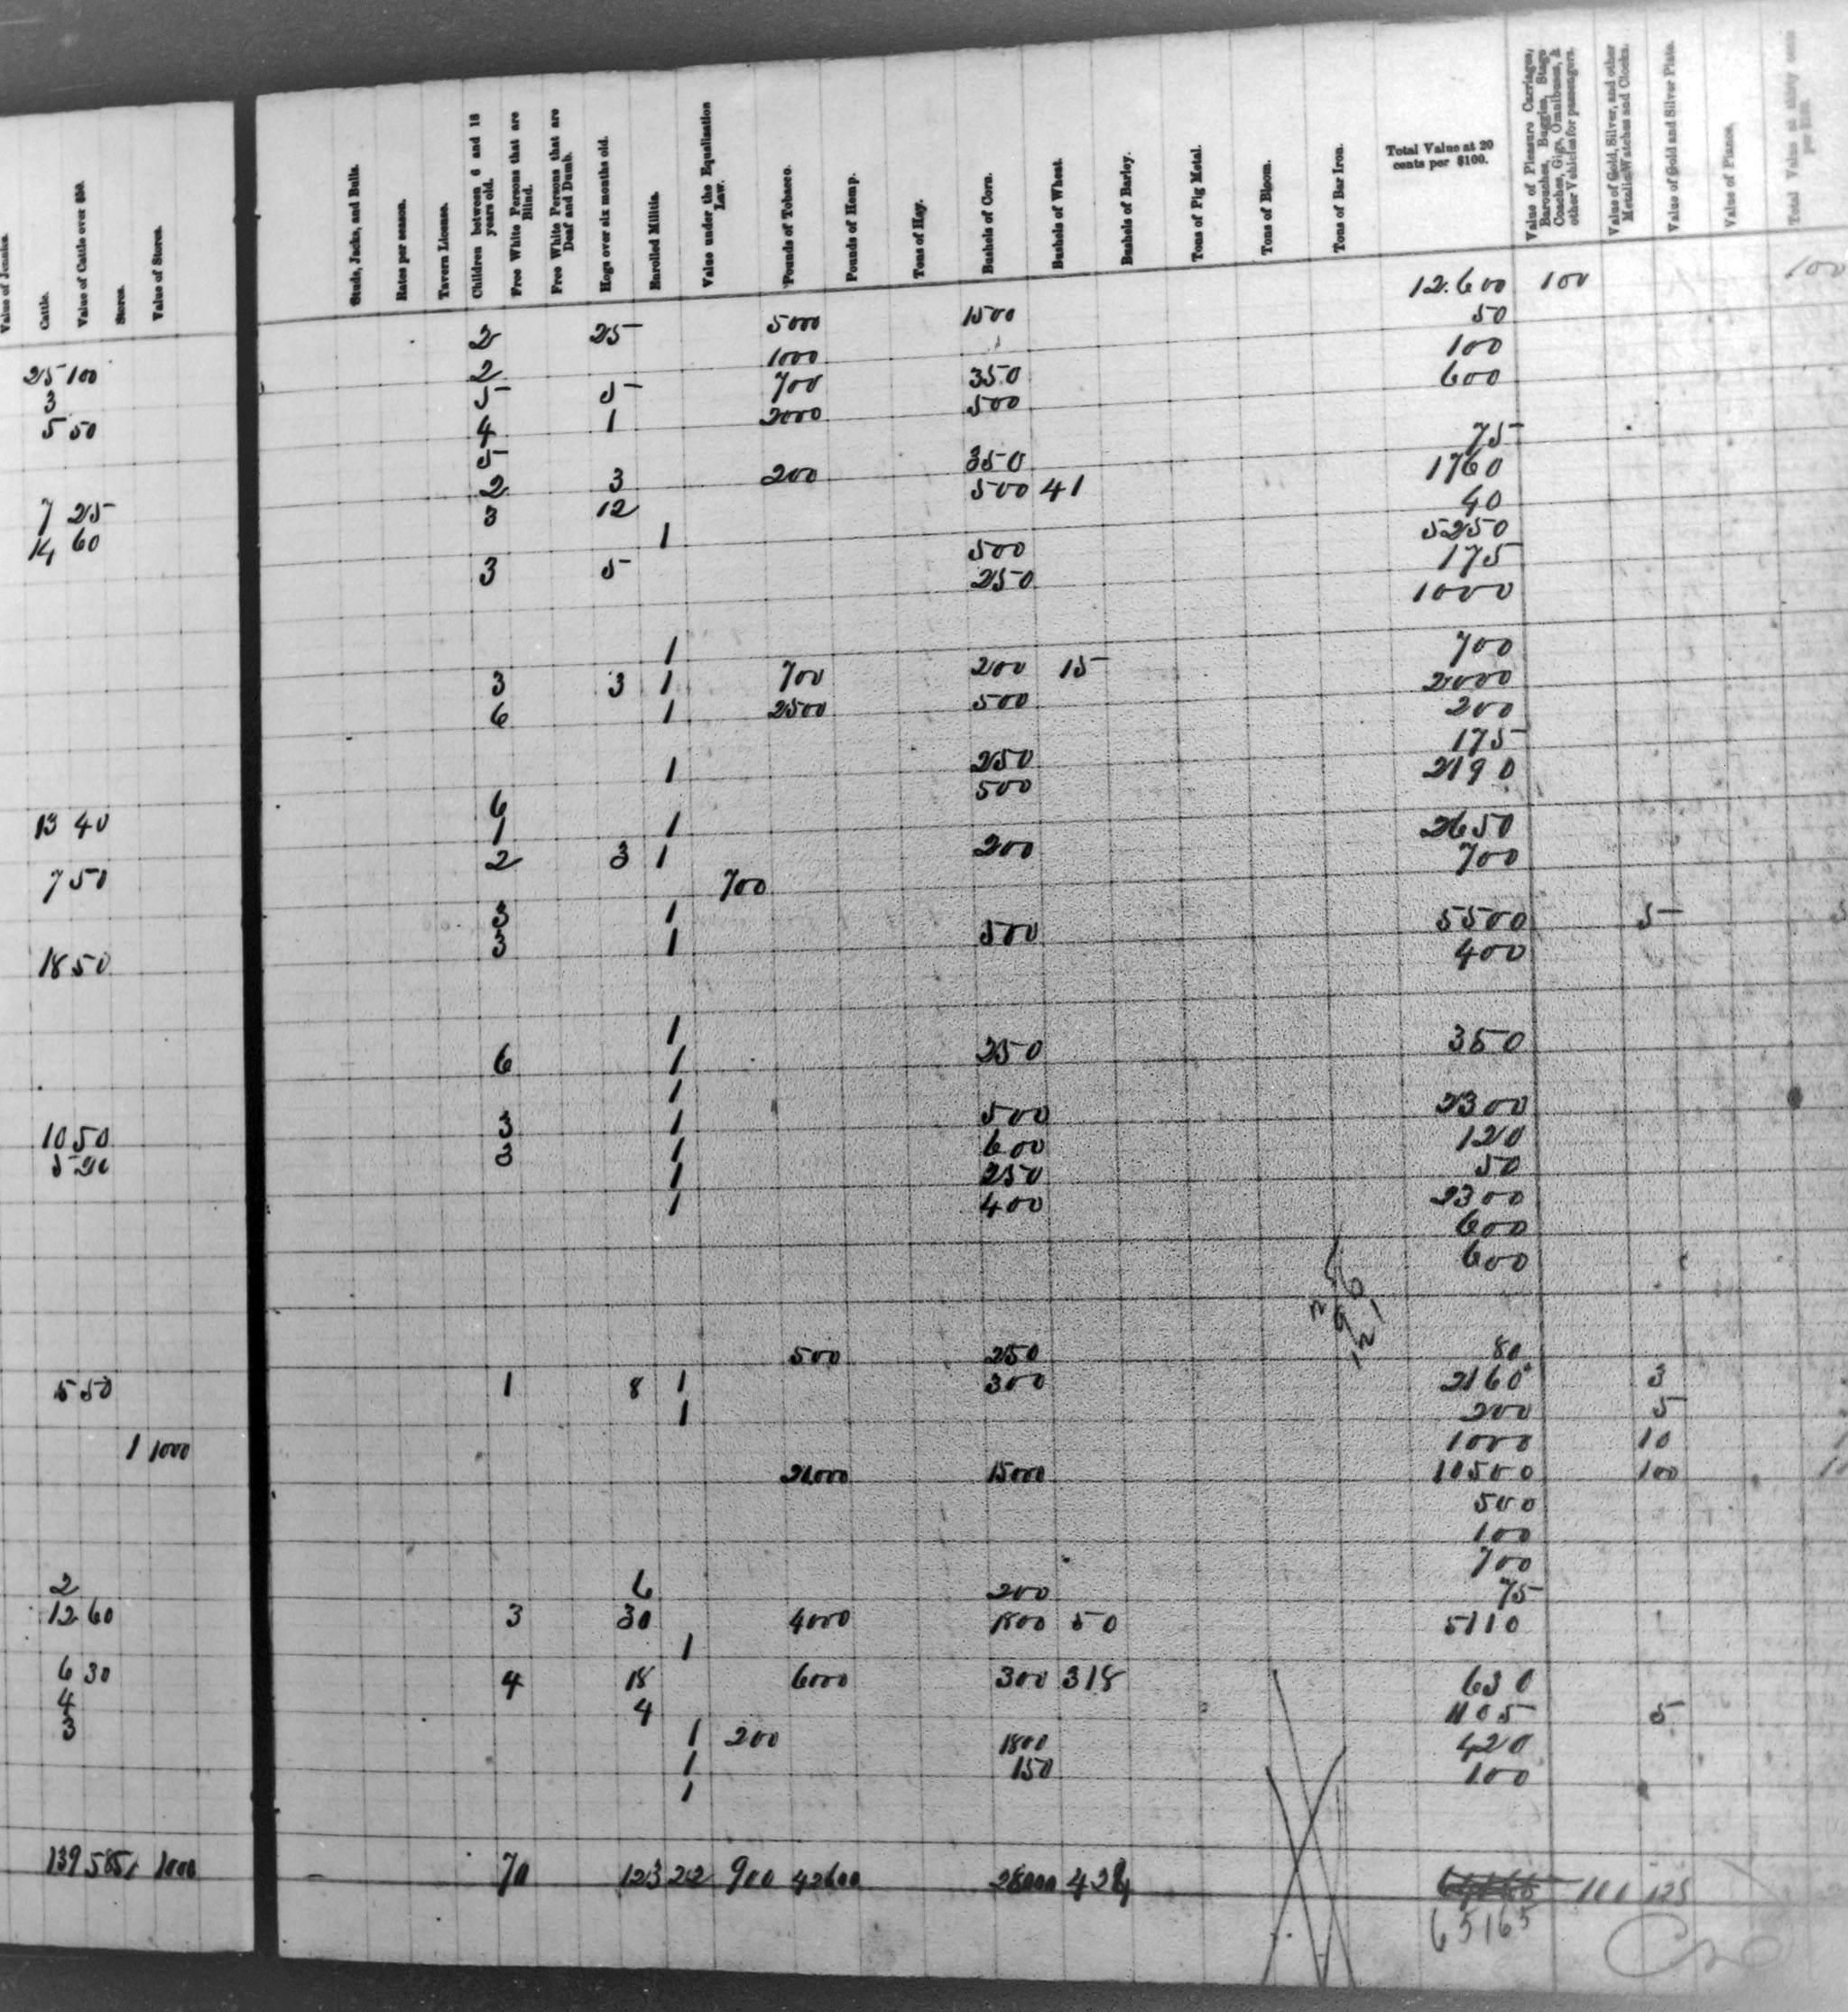 Value of Jennies.
Cattle.
Value of Cattle over $50.
Stores.
Value of Stores.
Studs, Jacks, and Bulls.
Rates per season.
Tavern License.
Children between 6 and 18 years old.
Free White Persons that are Blind.
Free White Persons that are Deaf and Dumb.
Hogs over six months old.
Enrolled Militia.
Value under the Equalization Law.
Pounds of Tobacco.
Pounds of Hemp.
Tons of Hay.
Bushels of Corn.
Bushels of Wheat.
Bushels of Barley.
Tons of Pig Metal.
Tons of Bloom.
Tons of Bar Iron.
Total Value at 20 cents per $100.
Value of Pleasure Carriages, Barouches, Buggies, Stage Coaches, Gigs, Omnibuses, & other Vehicles for passengers.
Value of Gold, Silver, and other Metallic Watches and Clocks.
Value of Gold and Silver Plate.
Value of Pianos.
Total Value at thirty cents per $100.
12.600 100 100
2 25 5000 1500 50
25 100 2 1000 100
3 5 5 700 350 600
5 50 4 1 2000 500
5 75
2 3 200 350 1760
7 25 3 12 500 41 40
14 60 1 5250
3 5 500 175
250 1000
1 700
3 3 1 700 200 15 2000
6 1 2500 500 200
175
1 250 2190
6 500
13 40 1 1 2650
2 3 1 200 700
7 50 700
3 1 5500 5
18 50 3 1 500 400
1
6 1 250 350
1
3 1 500 2300
10 50 3 1 600 120
5 20 1 250 50
1 400 2300
600
600
500 250 80
5 50 1 8 1 300 2160 3
1 200 5
1 1000 1000 10
21000 15000 10500 100
500
100
700
2 6 200 75
12 60 3 30 4000 1800 50 5110
1
6 30 4 18 6000 300 318 630
4 4 1105 5
3 1 200 1800 420
1 150 100
1
139 585 1 1000 70 123 22 900 42600 28000 424 100 125
65165